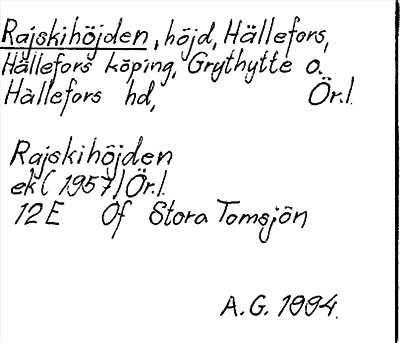 Rajskihöjden, höjd, Hällefors,
Hällefors köping, Grythytte o.
Hällefors hd, Ör.l.
Rajskihöjden
ek (1957) Ör.l.
12E Of Stora Tomsjön
A.G. 1994.